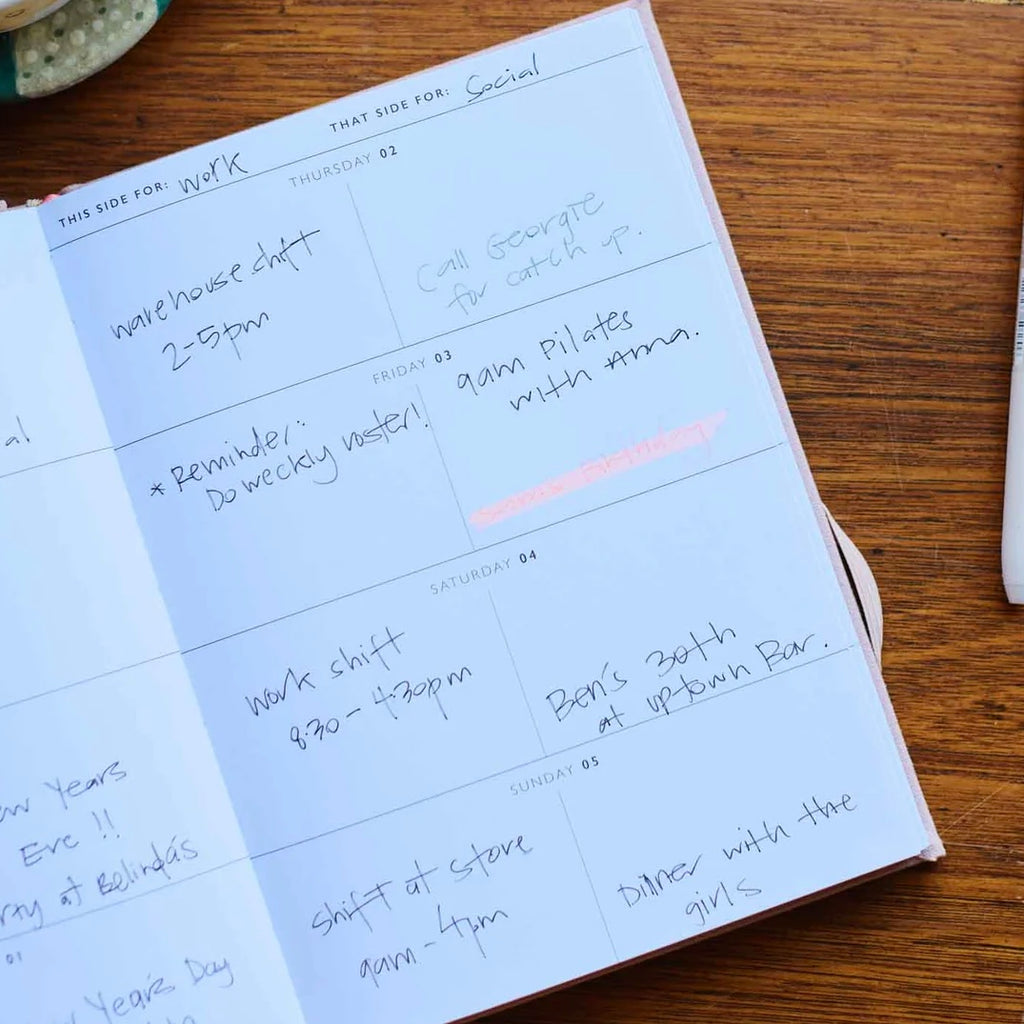 al
Years
Eve !!
at Belinda's
01
Year's Day
THIS SIDE FOR: work
THAT SIDE FOR: Social
THURSDAY 02
warehouse shift
2-5pm
Call Georgie
for catch up.
FRIDAY 03
* Reminder:
Do weekly roster!
9am Pilates
with Anna.
Birthday
SATURDAY 04
work shift
8:30 - 4:30pm
Ben's 30th
at uptown Bar.
SUNDAY 05
shift at store
9am - 4pm
Dinner with the
girls